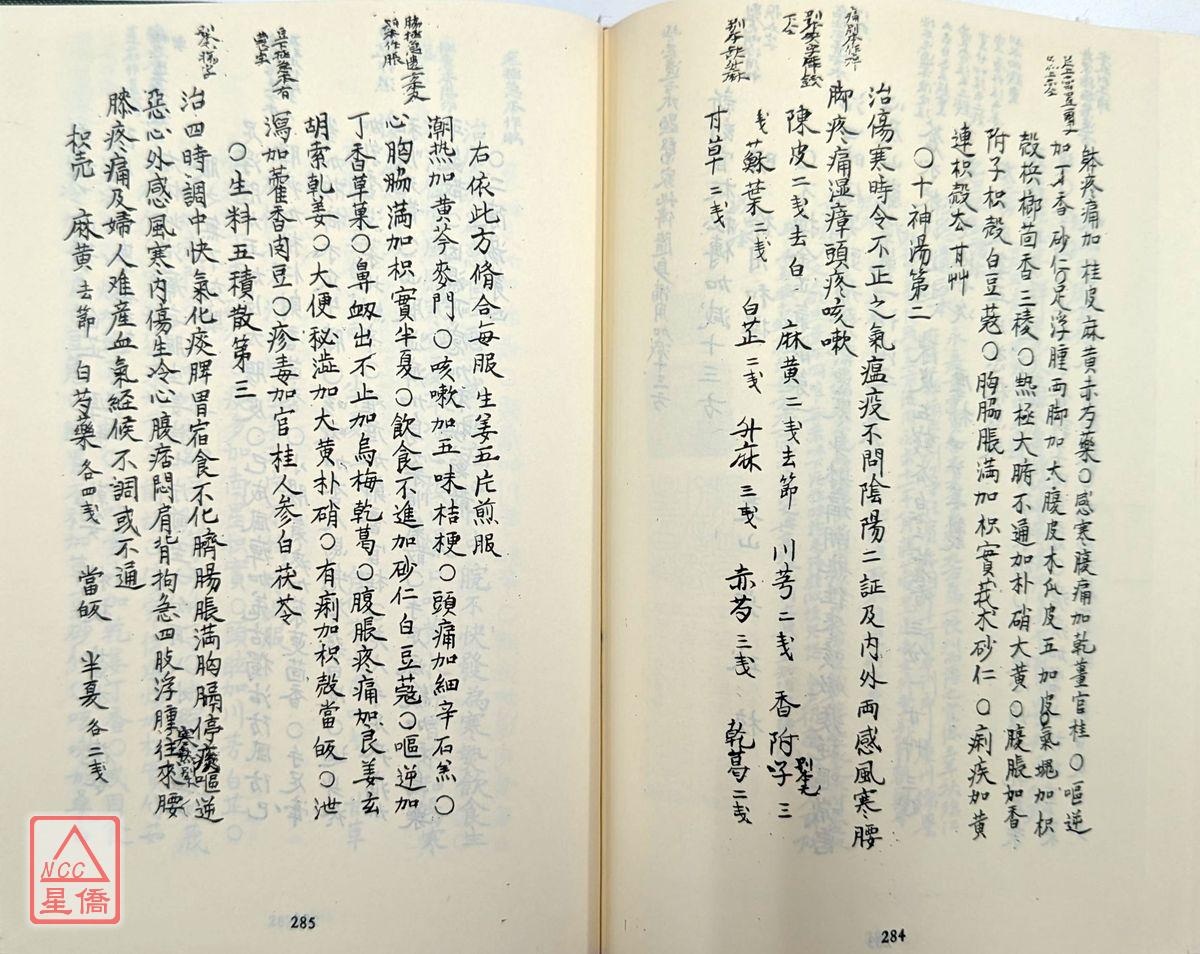 躰疼痛加桂皮麻黄赤芍藥〇感寒腹痛加乾薑官桂〇嘔逆
加丁香砂仁〇足浮腫両脚加大腹皮木瓜皮五加皮〇氣塊加枳
殻梹榔茴香三稜〇热極大腑不通加朴硝大黄〇腹脹加香
附子枳殻白豆蔻〇胸脇脹滿加枳實莪术砂仁〇痢疾加黄
連枳殻太甘艸
〇十神湯第二
治傷寒時令不正之氣瘟疫不問陰陽二証及内外両感風寒腰
脚疼痛湿瘴頭疼咳嗽
陳皮二戋去白 麻黄二戋去節 川芎二戋 香附子三
戋 蘇葉二戋 白芷二戋 升麻三戋 赤芍三戋 乾葛二戋
甘草二戋
284
右依此方脩合每服生姜五片煎服
潮热加黄芩麥門〇咳嗽加五味桔梗〇頭痛加細辛石羔〇
心胸腸滿加枳實半夏〇飲食不進加砂仁白豆蔻〇嘔逆加
丁香草菓〇鼻衂出不止加烏梅乾葛〇腹脹疼痛加良姜玄
胡索乾姜〇大便秘澁加大黄朴硝〇有痢加枳殻當皈〇泄
瀉加藿香肉豆〇疹毒加官桂人参白茯苓
〇生料五積散第三
治四時調中快氣化痰脾胃宿食不化臍腸脹满胸膈停痰嘔逆
惡心外感風寒内傷生冷心腹痞悶肩背拘急四肢浮腫往來腰
膝疼痛及婦人难産血氣経候不調或不通
枳壳 麻黄去節 白芍藥各四戋 當皈 半夏各二戋
285
NCC
星僑